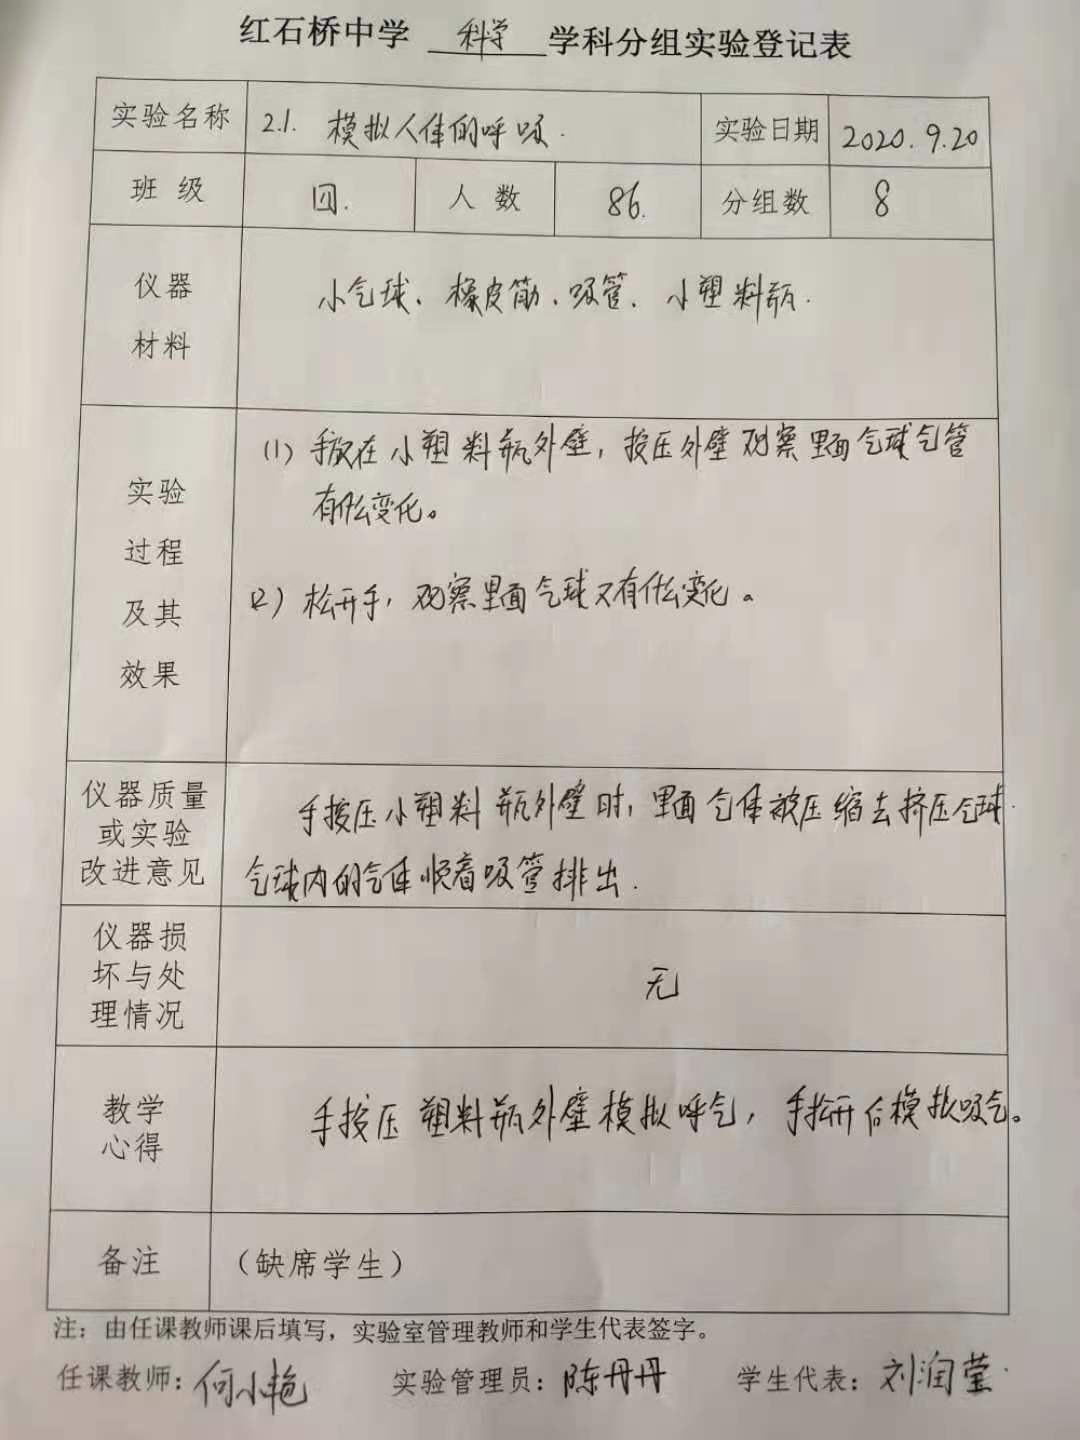 红石桥中学 科学 学科分组实验登记表
实验名称 2.1. 模拟人体的呼吸. 实验日期 2020.9.20
班 级 四. 人 数 86. 分组数 8
仪器
材料
小气球、橡皮筋、吸管、小塑料瓶.
实验
过程
及其
效果
(1) 手放在小塑料瓶外壁,按压外壁观察里面气球气管
有什么变化。
(2) 松开手,观察里面气球又有什么变化。
仪器质量
或实验
改进意见
手按压小塑料瓶外壁时,里面气体被压缩去挤压气球.
气球内的气体顺着吸管排出.
仪器损
坏与处
理情况
无
教学
心得
手按压塑料瓶外壁模拟呼气,手松开后模拟吸气。
备注 (缺席学生)
注:由任课教师课后填写,实验室管理教师和学生代表签字。
任课教师:何小艳 实验管理员:陈丹丹 学生代表:刘润莹